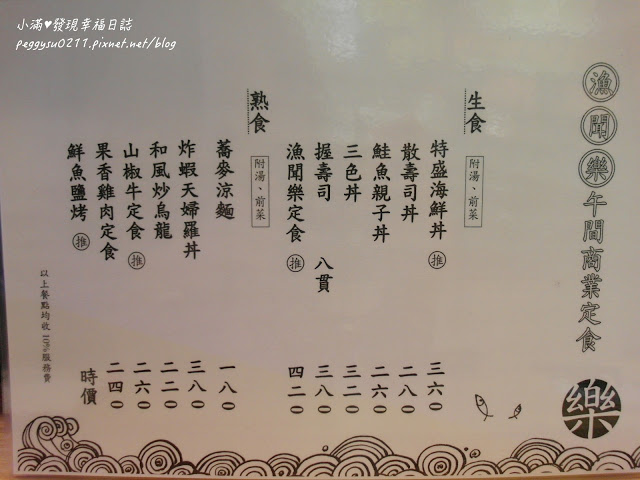 小滿♥發現幸福日誌
peggysu0211.pixnet.net/blog
漁聞樂午間商業定食
樂
生食 附湯、前菜
特盛海鮮丼 推 三六0
散壽司丼 二八0
鮭魚親子丼 二六0
三色丼 三二0
握壽司 八貫 三八0
漁聞樂定食 推 四二0
熟食 附湯、前菜
蕎麥涼麵 一八0
炸蝦天婦羅丼 三八0
和風炒烏龍 二二0
山椒牛定食 推 二六0
果香雞肉定食 二四0
鮮魚鹽烤 推 時價
以上餐點均收10%服務費